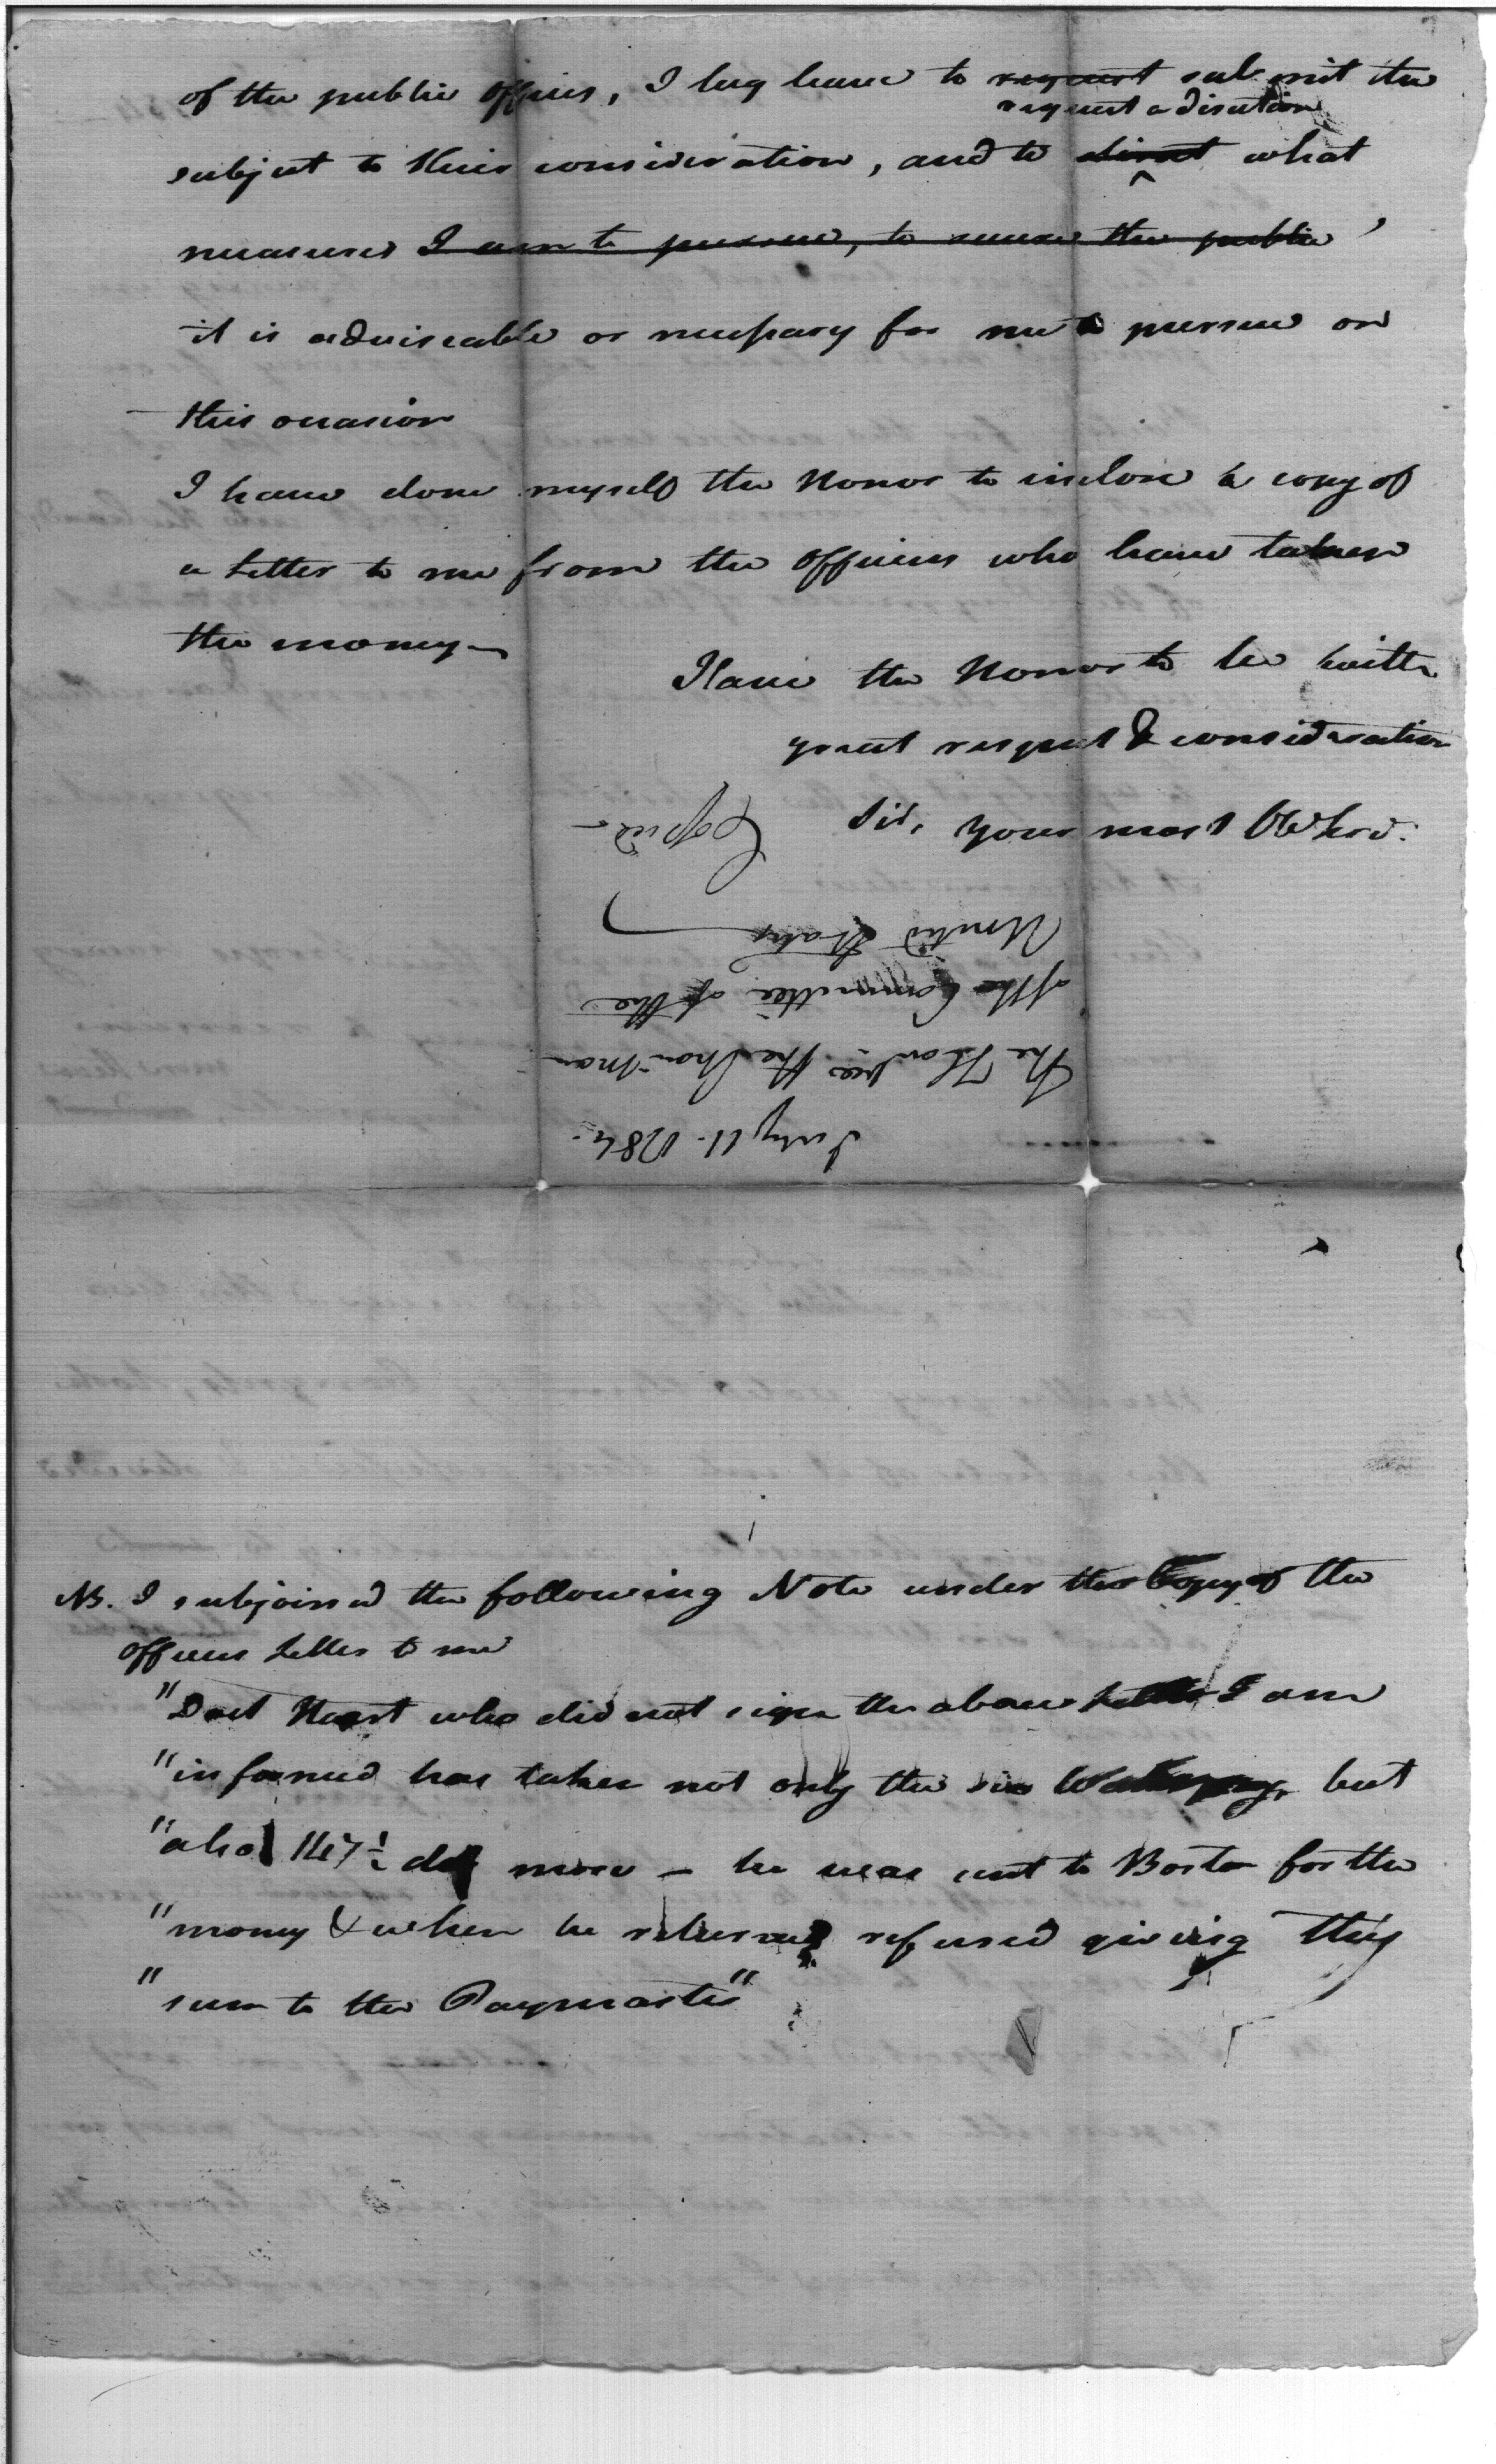 of the public offices, I beg leave to request submit the
request a direction
subject to their consideration, and to direct what
measures I am to pursue, to secure the public
it is adviseable or necessary for me to pursue on
this occasion
I have done myself the Honor to inclose a copy of
a Letter to me from the Officers who have taken
the money—
Have the Honor to be with
great respect & consideration
Sir, your most Obt Serv.
July 11. 1784.
The Honble the Chairman
of the Committee of the
United States
Copied—
NB. I subjoined the following Note under the Copy of the
officers Letter to me
"Doct Hart who did not sign the above Letter I am
"informed has taken not only the six but
"also 1147½ dol more — he was sent to Boston for the
"money & when he returned refused giving this
"sum to the Paymaster"